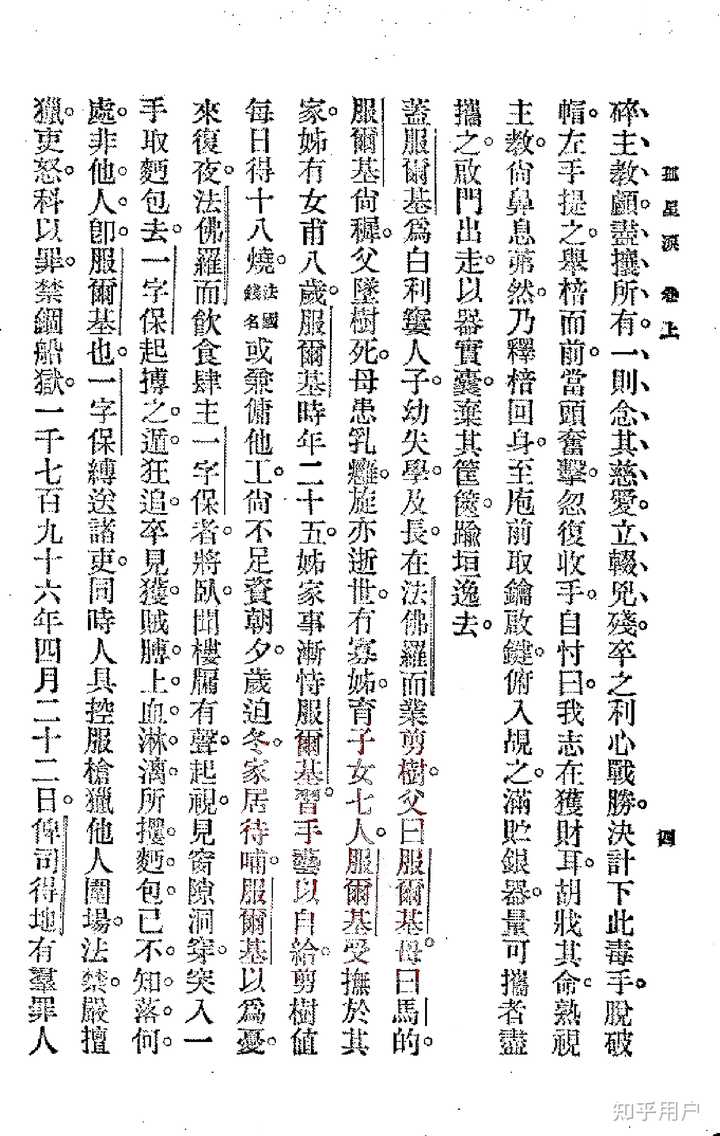 孤星淚 卷上
四
碎主教顱盡攘所有。一則念其慈愛。立輟兇殘。卒之利心戰勝。決計下此毒手。脫破
帽。左手提之。舉棓而前。當頭奮擊。忽復收手。自忖曰。我志在獲財耳。胡戕其命。熟視
主教。尙鼻息茀然。乃釋棓回身。至庖前取鑰啟鍵。俯入覘之。滿貯銀器。量可攜者盡
攜之。啟門出走。以器實囊。棄其筐篋。踰垣逸去。
蓋服爾基爲白利窶人子。幼失學。及長。在法佛羅而業剪樹。父曰服爾基。母曰馬的。
服爾基尙穉。父墜樹死。母患乳癰。旋亦逝世。有寡姊。育子女七人。服爾基受撫於其
家。姊有女甫八歲。服爾基時年二十五。姊家事漸恃服爾基習手藝以自給。剪樹値
每日得十八燒。法國錢名或兼傭他工。尙不足資朝夕。歲迫冬。家居待哺。服爾基以爲憂。
來復夜。法佛羅而飲食肆主一字保者。將臥。聞樓牖有聲。起視。見窗隙洞穿。突入一
手取麪包去。一字保起搏之。遁。狂追。卒見獲。賊膊上血淋漓。所攫麪包已不知落何
處。非他人。卽服爾基也。一字保縛送諸吏。同時人具控服槍獵他人圍場。法禁嚴擅
獵。吏怒。科以罪。禁錮船獄。一千七百九十六年四月二十二日。俾司得地有羣罪人
知乎用户